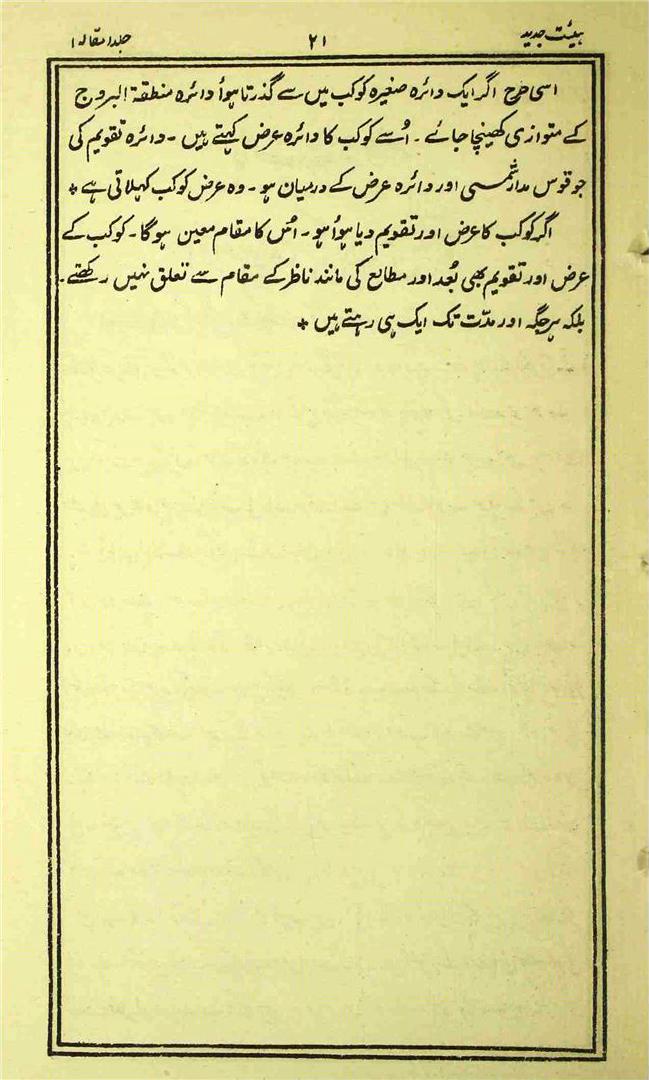 ہیئت جدید ۲۱ جلد۱ مقالہ۱
اسی طرح اگر ایک دائرہ صغیرہ کوکب میں سے گذرتا ہوأ دائرہ منطقۃ البروج
کے متوازی کھینچا جائے ۔ اُسے کوکب کا دائرہ عرض کہتے ہیں ۔ دائرہ تقویم کی
جو قوس مدار شمسی اور دائرہ عرض کے درمیان ہو ۔ وہ عرض کوکب کہلاتی ہے *
اگر کوکب کا عرض اور تقویم دیا ہوأ ہو ۔ اُس کا مقام معین ہوگا ۔ کوکب کے
عرض اور تقویم بھی بُعد اور مطالع کی مانند ناظر کے مقام سے تعلق نہیں رکھتے ۔
بلکہ ہر جگہ اور مدّت تک ایک ہی رہتے ہیں *